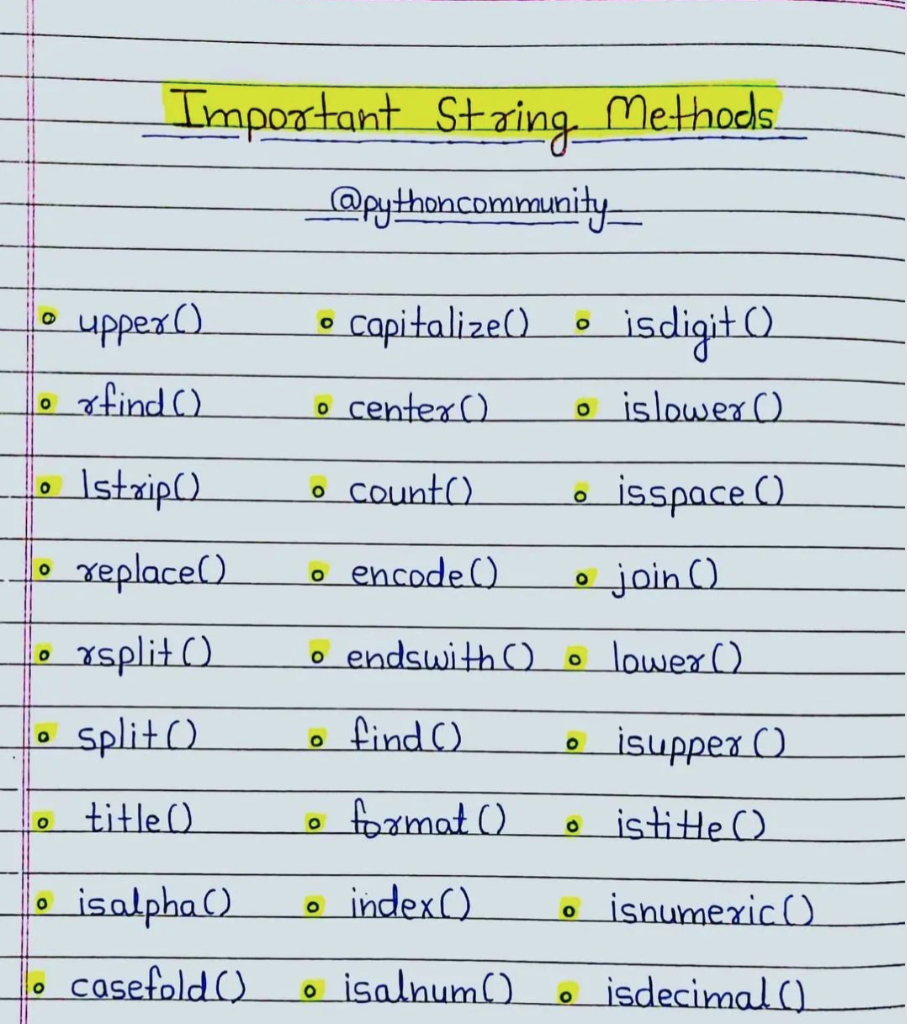 Important String Methods
@pythoncommunity
upper() capitalize() isdigit()
rfind() center() islower()
lstrip() count() isspace()
replace() encode() join()
rsplit() endswith() lower()
split() find() isupper()
title() format() istitle()
isalpha() index() isnumeric()
casefold() isalnum() isdecimal()